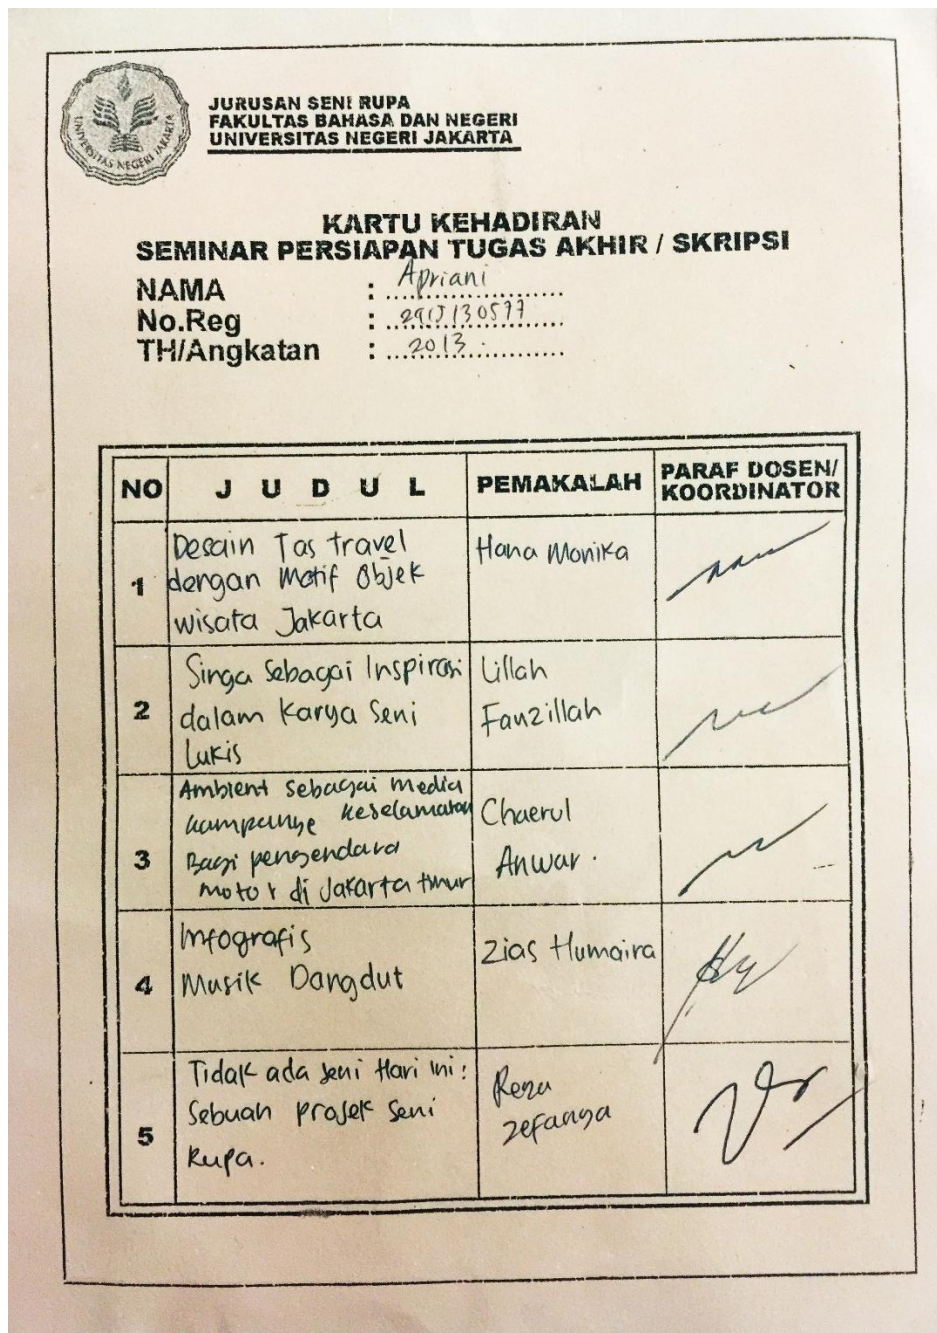 UNIVERSITAS NEGERI JAKARTA
JURUSAN SENI RUPA
FAKULTAS BAHASA DAN NEGERI
UNIVERSITAS NEGERI JAKARTA
KARTU KEHADIRAN
SEMINAR PERSIAPAN TUGAS AKHIR / SKRIPSI
NAMA : Apriani
No.Reg :
TH/Angkatan : 2013
NO J U D U L PEMAKALAH PARAF DOSEN/
KOORDINATOR
1
Desain Tas travel
dengan Motif Objek
wisata Jakarta
Hana Monika
2
Singa sebagai Inspirasi
dalam Karya Seni
Lukis
Lillah
Fauzillah
3
Ambient sebagai media
kampanye keselamatan
Bagi pengendara
motor di Jakarta timur
Chaerul
Anwar.
4
Infografis
Musik Dangdut
Zias Humaira
5
Tidak ada seni Hari ini:
Sebuah projek seni
Rupa.
Reza
zefanya